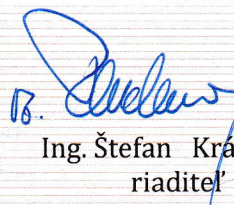 Ing. Štefan Krá
riaditeľ